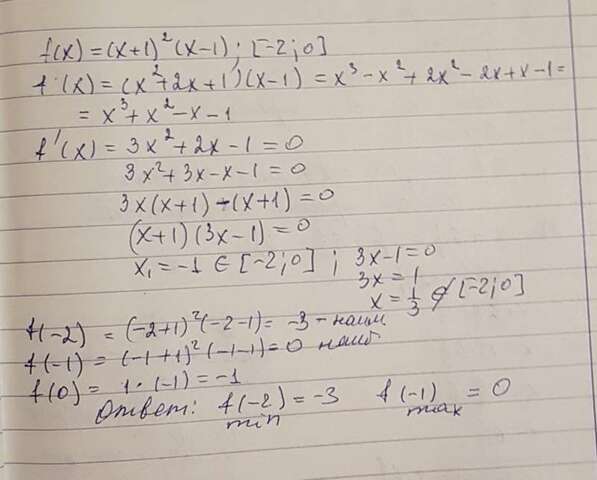 f(x) = (x+1)²(x-1); [-2;0]
f(x) = (x²+2x+1)(x-1) = x³-x²+2x²-2x+x-1=
= x³+x²-x-1
f'(x) = 3x²+2x-1=0
3x²+3x-x-1=0
3x(x+1)-(x+1)=0
(x+1)(3x-1)=0
x₁=-1 ∈ [-2;0] ; 3x-1=0
3x=1
x=1/3 ∉ [-2;0]
f(-2) = (-2+1)²(-2-1)= -3 - наим
f(-1) = (-1+1)²(-1-1)=0 наиб
f(0) = 1·(-1)=-1
Ответ: f(-2) = -3 f(-1) = 0
min max